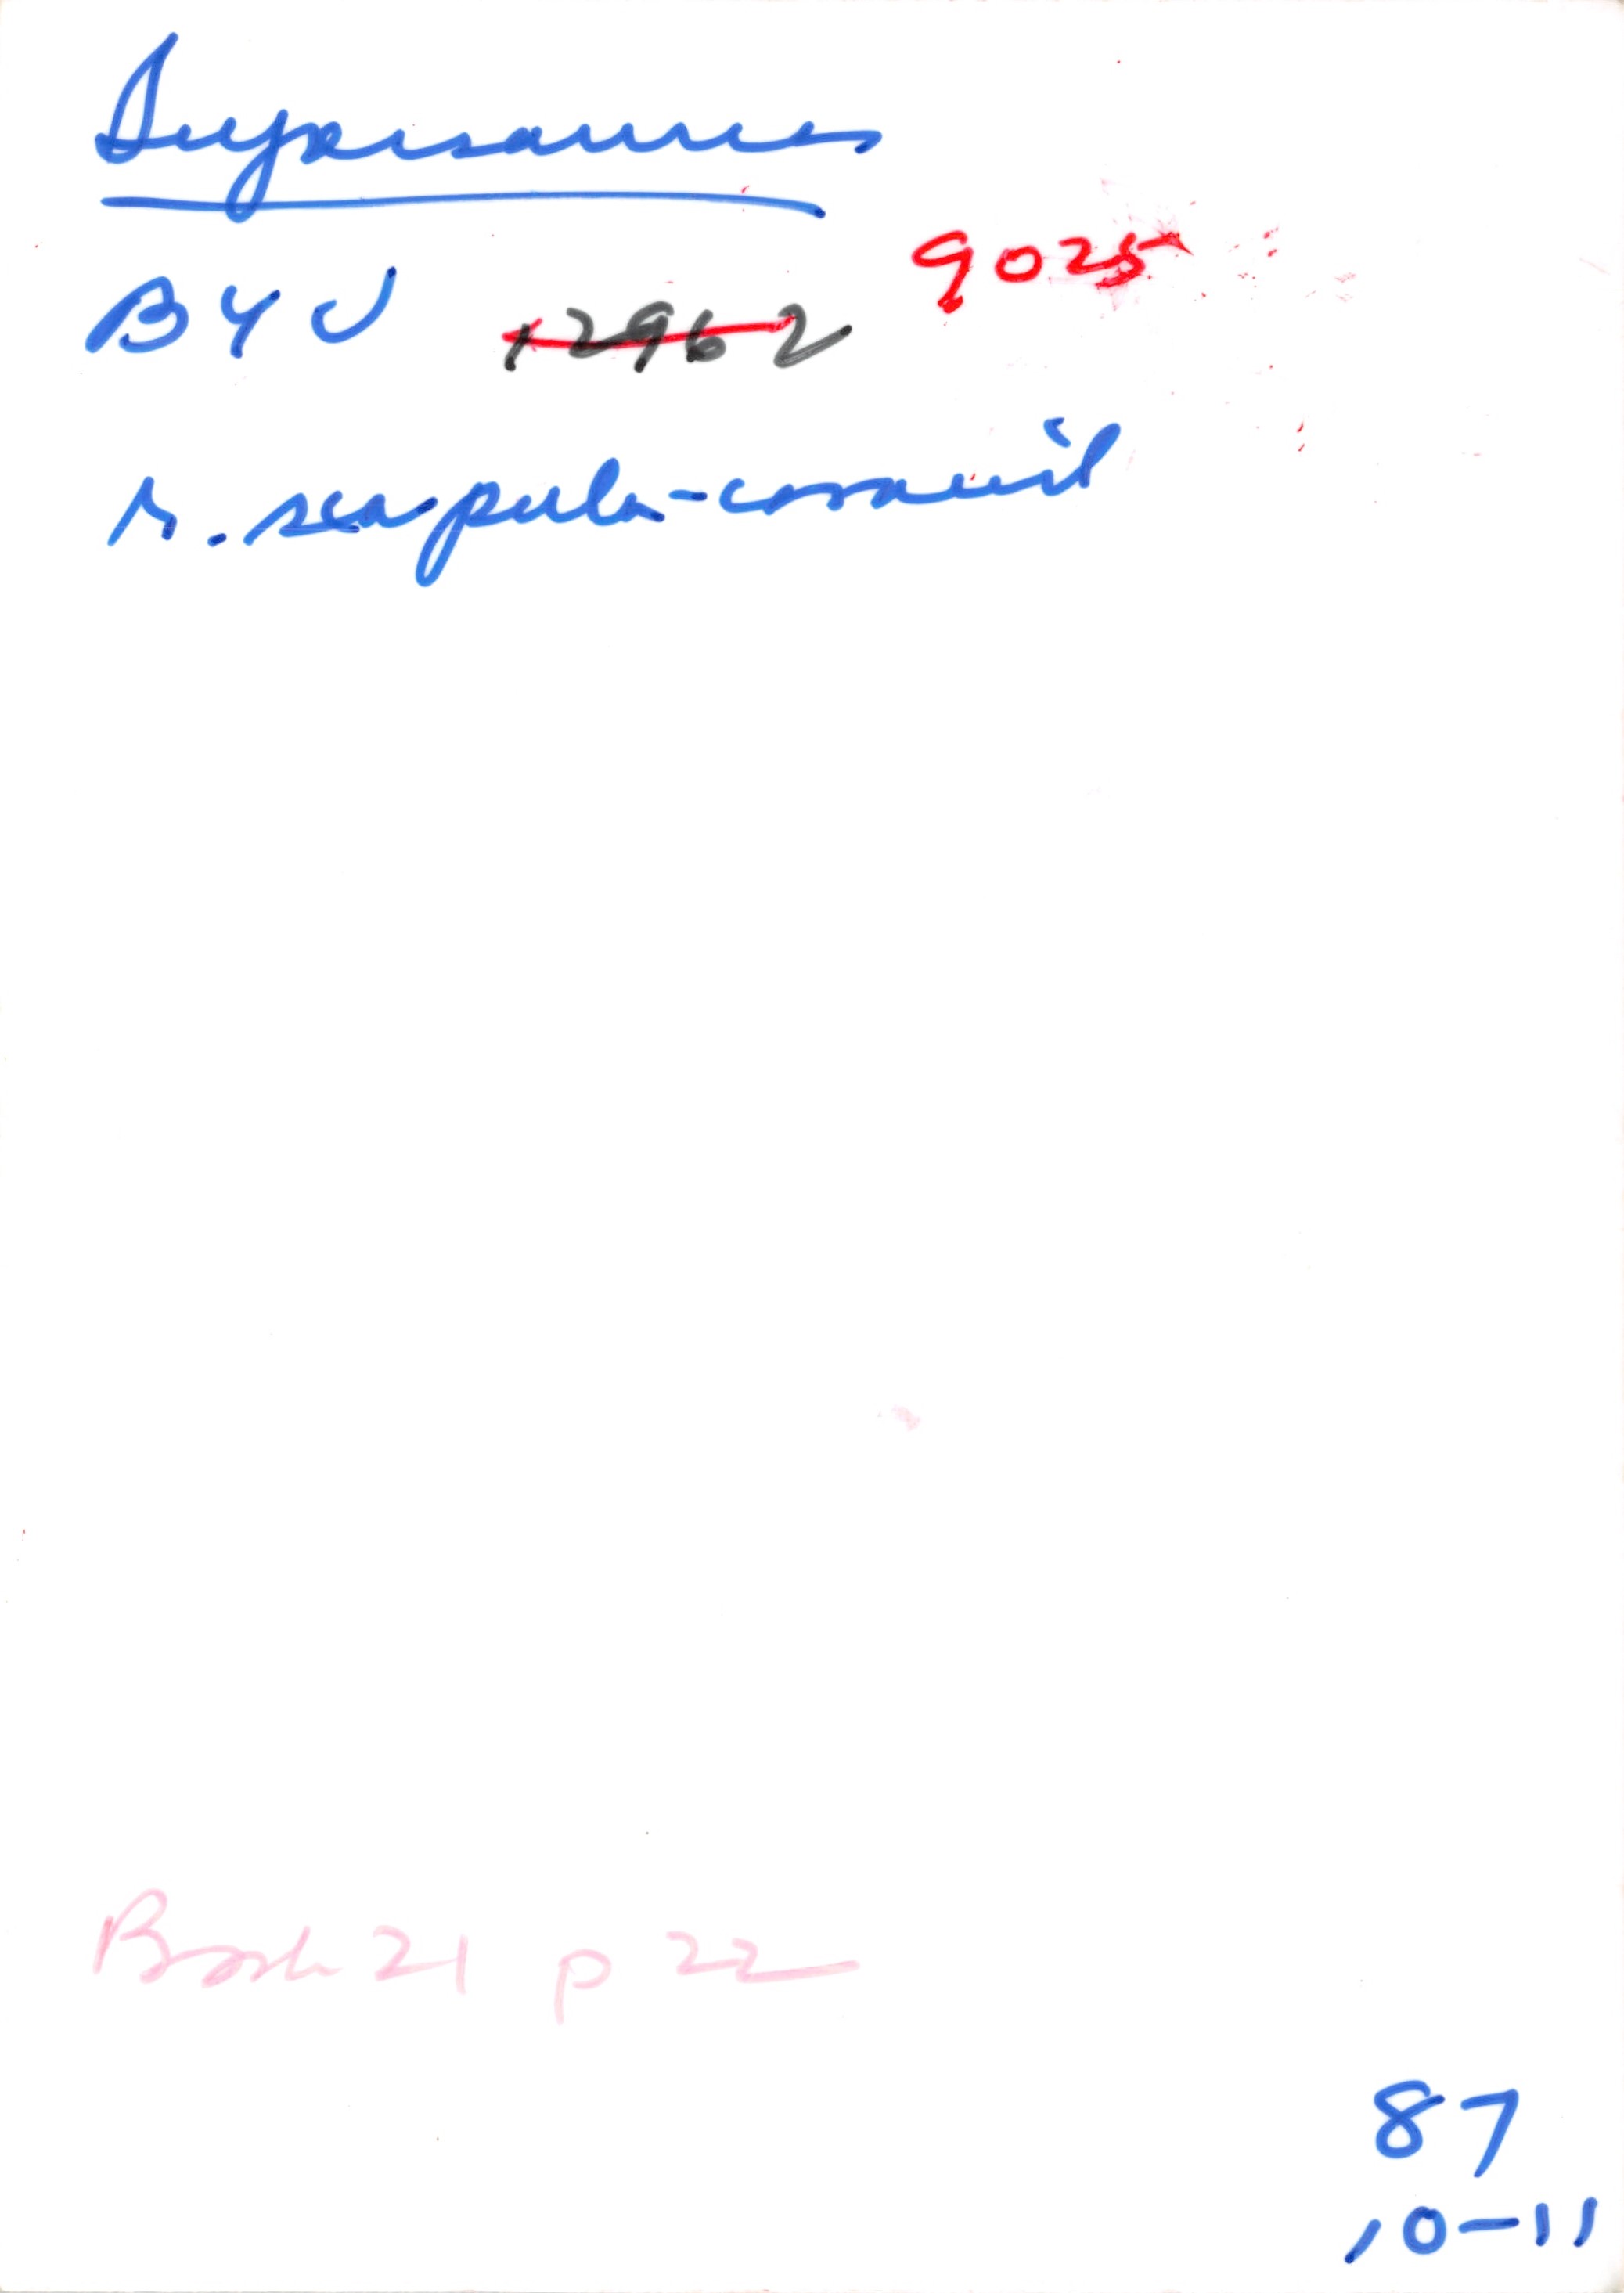 Supersaurus
BYU 12962 9025
r. scapula-coracoid
Book 21 p 22
87
10-11